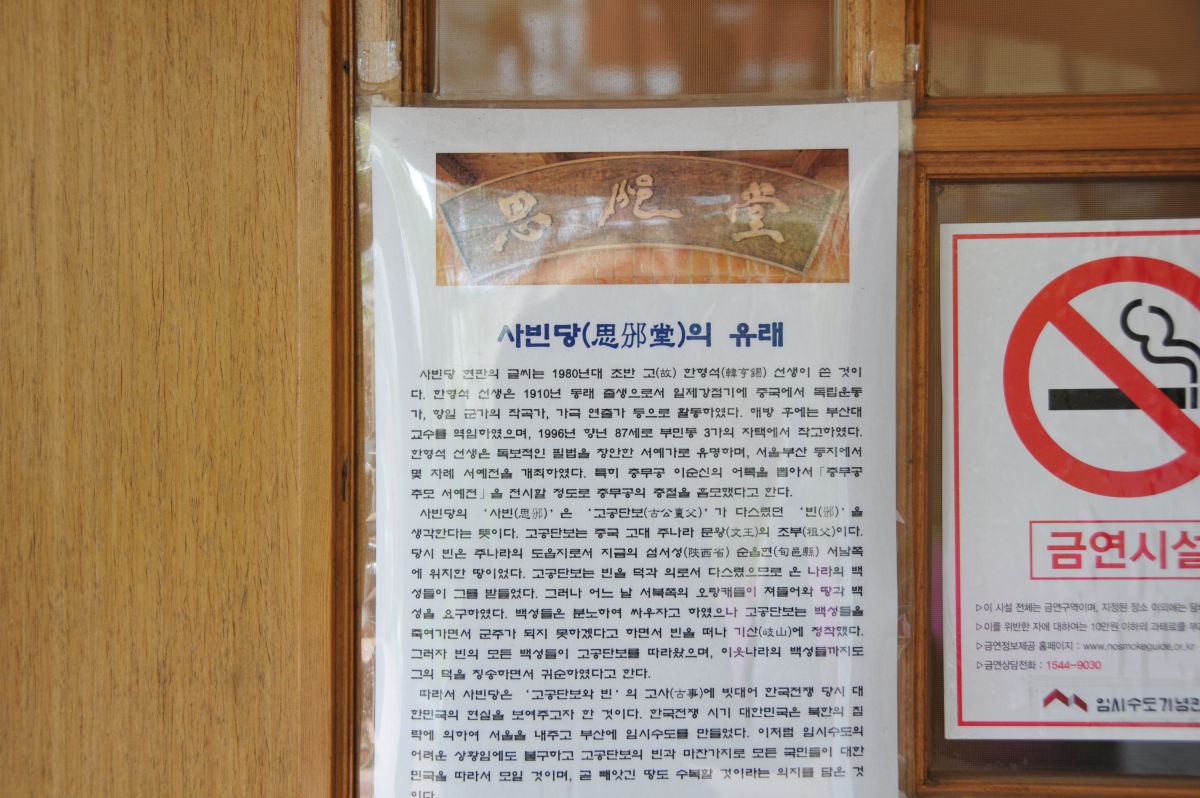 思邠堂
사빈당(思邠堂)의 유래
사빈당 현판의 글씨는 1980년대 초반 고(故) 한형석(韓亨錫) 선생이 쓴 것이
다. 한형석 선생은 1910년 동래 출생으로서 일제강점기에 중국에서 독립운동
가, 항일 군가의 작곡가, 가극 연출가 등으로 활동하였다. 해방 후에는 부산대
교수를 역임하였으며, 1996년 향년 87세로 부민동 3가의 자택에서 작고하였다.
한형석 선생은 독보적인 필법을 창안한 서예가로 유명하며, 서울부산 등지에서
몇 차례 서예전을 개최하였다. 특히 충무공 이순신의 어록을 뽑아서 「충무공
추모 서예전」을 전시할 정도로 충무공의 충절을 흠모했다고 한다.
사빈당의 '사빈(思邠)'은 '고공단보(古公亶父)'가 다스렸던 '빈(邠)'을
생각한다는 뜻이다. 고공단보는 중국 고대 주나라 문왕(文王)의 조부(祖父)이다.
당시 빈은 주나라의 도읍지로서 지금의 섬서성(陝西省) 순읍현(旬邑縣) 서남쪽
에 위치한 땅이었다. 고공단보는 빈을 덕과 의로서 다스렸으므로 온 나라의 백
성들이 그를 받들었다. 그러나 어느 날 서북쪽의 오랑캐들이 쳐들어와 땅과 백
성을 요구하였다. 백성들은 분노하여 싸우자고 하였으나 고공단보는 백성들을
죽여가면서 군주가 되지 못하겠다고 하면서 빈을 떠나 기산(岐山)에 정착했다.
그러자 빈의 모든 백성들이 고공단보를 따라왔으며, 이웃나라의 백성들까지도
그의 덕을 칭송하면서 귀순하였다고 한다.
따라서 사빈당은 '고공단보와 빈'의 고사(古事)에 빗대어 한국전쟁 당시 대
한민국의 현실을 보여주고자 한 것이다. 한국전쟁 시기 대한민국은 북한의 침
략에 의하여 서울을 내주고 부산에 임시수도를 만들었다. 이처럼 임시수도의
어려운 상황임에도 불구하고 고공단보의 빈과 마찬가지로 모든 국민들이 대한
민국을 따라서 모일 것이며, 곧 빼앗긴 땅도 수복할 것이라는 의지를 담은 것
이다.
금연시설
▷이 시설 전체는 금연구역이며, 지정된 장소 이외에는
▷이를 위반한 자에 대하여는 10만원 이하의 과태료를
▷금연정보제공 홈페이지 : www.nosmokeguide.or.kr
▷금연상담전화 : 1544-9030
임시수도기념관